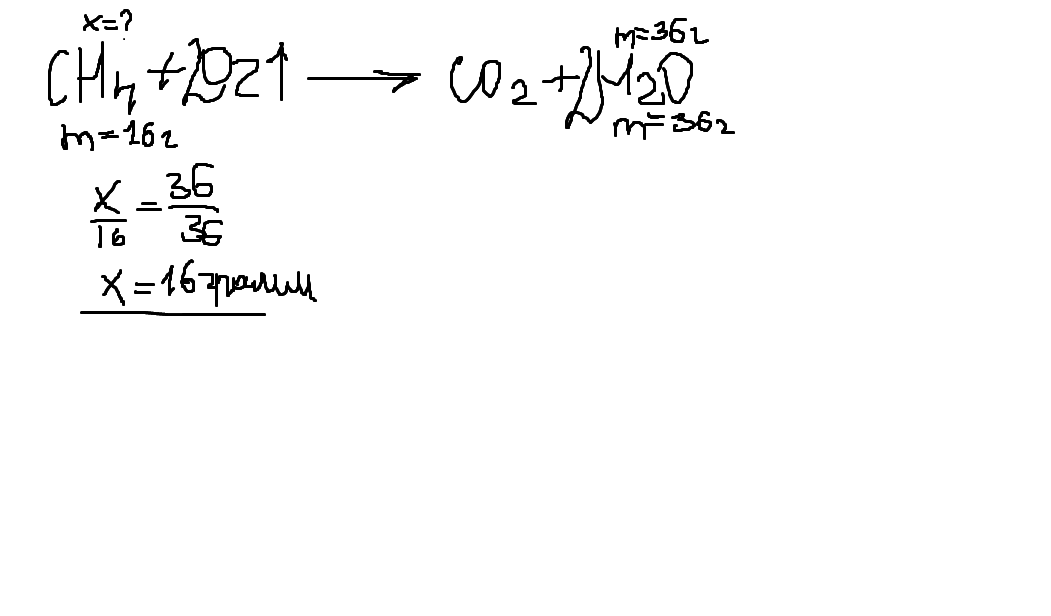 x=?
m=36г
CH₄+2O2↑ ⟶ CO₂+2H₂O
m=16г
m=36г
x/16=36/36
x=16грамм